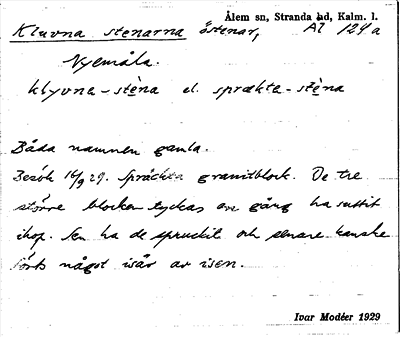 Ålem sn, Stranda hd, Kalm. l.
Kluvna stenarna östenar, Al 124a
Nyemåla.
klyvna-stèna el. spräkta-stèna
Båda namnen gamla.
Besök 16/9 29. Spräckta granitblock. De tre
större blocken tyckas en gång ha suttit
ihop. Sen ha de spruckit och senare kanske
förts något isär av isen.
Ivar Modéer 1929